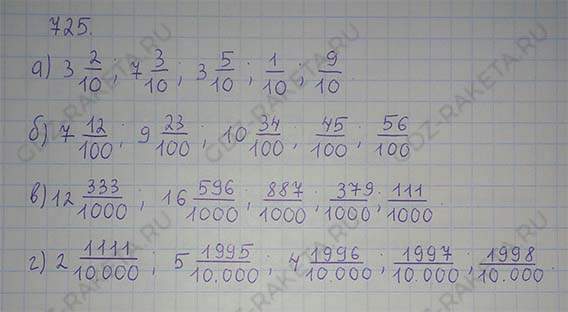 725.
а) 3 2/10 ; 7 3/10 ; 3 5/10 ; 1/10 ; 9/10 .
б) 7 12/100 ; 9 23/100 ; 10 34/100 ; 45/100 ; 56/100
в) 12 333/1000 ; 16 596/1000 ; 887/1000 ; 379/1000 ; 111/1000 .
г) 2 1111/10.000 ; 5 1995/10.000 ; 4 1996/10.000 ; 1997/10.000 ; 1998/10.000 .
GDZ-RAKETA.RU